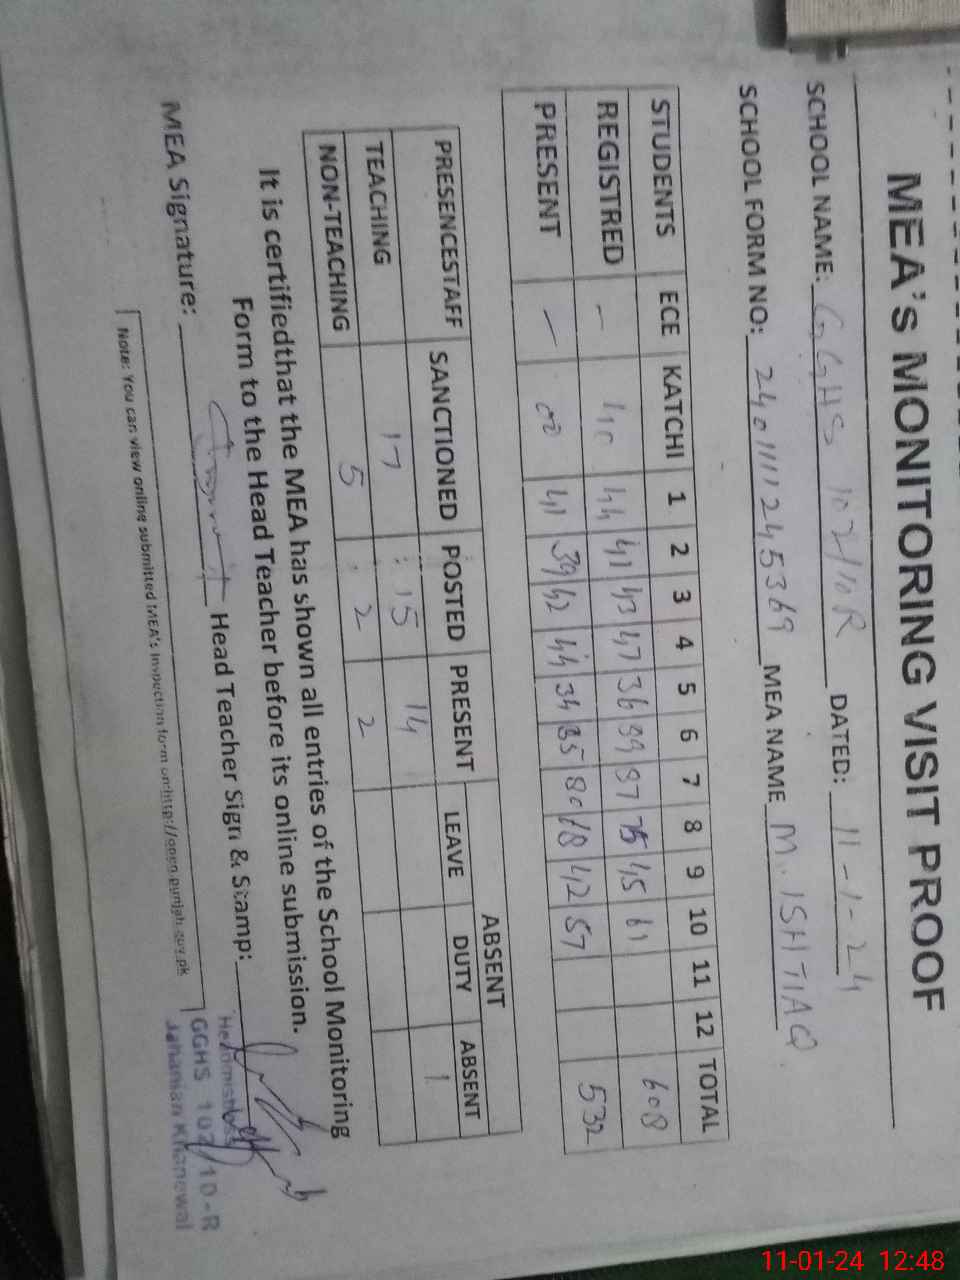 MEA's MONITORING VISIT PROOF
SCHOOL NAME: GGHS 102/10R DATED: 11-1-24
SCHOOL FORM NO: 2401111245369 MEA NAME M. ISHTIAQ
STUDENTS ECE KATCHI 1 2 3 4 5 6 7 8 9 10 11 12 TOTAL
REGISTRED - 40 44 41 43 47 36 39 97 75 45 61 608
PRESENT - 41 39 42 44 34 35 80 68 42 57 532
PRESENCESTAFF SANCTIONED POSTED PRESENT ABSENT
LEAVE DUTY ABSENT
TEACHING 17 15 14 1
NON-TEACHING 5 2 2
It is certifiedthat the MEA has shown all entries of the School Monitoring
Form to the Head Teacher before its online submission.
MEA Signature: Head Teacher Sign & Stamp:
Headmistress
GGHS 102/10-R
Jahanian Khanewal
Note: You can view online submitted MEA's Inspection form on:http://open.punjab.gov.pk
11-01-24 12:48